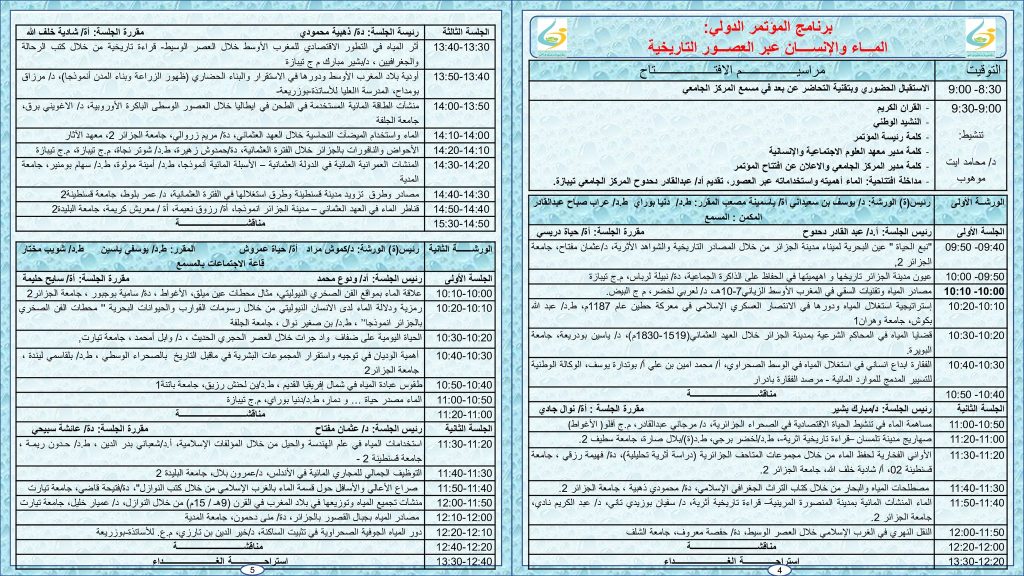 برنامج المؤتمر الدولي:
المـــاء والإنســـان عبر العصــور التاريخية
التوقيت
مراسيـــم الافتـــتـــاح
8:30- 9:00
الاستقبال الحضوري وبتقنية التحاضر عن بعد في مسمع المركز الجامعي
9:00-9:30
تنشيط:
د/ محامد ايت
موهوب
- القران الكريم
- النشيد الوطني
- كلمة رئيسة المؤتمر
- كلمة مدير معهد العلوم الاجتماعية والإنسانية
- كلمة مدير المركز الجامعي والاعلان عن افتتاح المؤتمر
- مداخلة افتتاحية: الماء أهميته واستخداماته عبر العصور، تقديم أ.د/ عبدالقادر دحدوح المركز الجامعي تيبازة.
الورشـة الأولى
رئيس(ة) الورشة: د/ يوسف بن سعيداني أة/ ياسمينة مصعب المقرر: ط.د/ دنيا بوراي ط.د/ عراب صباح عبدالقادر
المكمن : المسمع
الجلسة الأولى
رئيس الجلسة: أ.د/ عبد القادر دحدوح
مقررة الجلسة: أة/ حياة دريسي
09:40- 09:50
"نبع الحياة " عين البحرية لميناء مدينة الجزائر من خلال المصادر التاريخية والشواهد الأثرية، د/عثمان مفتاح، جامعة
الجزائر 2.
09:50- 10:00
عيون مدينة الجزائر تاريخها و اهميتها في الحفظ على الذاكرة الجماعية، دة/ نبيلة ثرباس، م.ج تيبازة
10:00- 10:10
مصادر المياه وتقنيات السقي في المغرب الأوسط الزياني7-10هـ، د/ لعربي لخضر، م.ج البيض.
10:10-10:20
إستراتيجية استغلال المياه ودورها في الانتصار العسكري الإسلامي في معركة حطين عام 1187م، ط.د/ عبد الله
بكوش، جامعة وهران1
10:20-10:30
قضايا المياه في المحاكم الشرعية بمدينة الجزائر خلال العهد العثماني(1519-1830م)، د/ ياسين بودريعة، جامعة
البويرة.
10:30-10:40
الفقارة ابداع انساني في استغلال المياه في الوسط الصحراوي، أ/ محمد امين بن علي أ/ بوتدارة يوسف، الوكالة الوطنية
للتسيير المدمج للموارد المائية - مرصد الفقارة بادرار
10:40- 10:50
مناقشــة
الجلسة الثانية
رئيس الجلسة: د/مبارك بشير
مقررة الجلسة : أة/ نوال جادي
10:50-11:00
مساهمة الماء في تنشيط الحياة الاقتصادية في الصحراء الجزائرية، د/ مرجاني عبدالقادر، م.ج افلو( الأغواط)
11:00-11:20
صهاريج مدينة تلمسان –قراءة تاريخية اثرية-، ط.د/لخضر برجي، ط.د(ة)/بلال صارة، جامعة سطيف 2.
11:20-11:30
الأواني الفخارية لحفظ الماء من خلال مجموعات المتاحف الجزائرية (دراسة أثرية تحليلية)، دة/ فهيمة رزقي ، جامعة
قسنطينة 02، أ/ شادية خلف الله، جامعة الجزائر 2.
11:30-11:40
مصطلحات المياه والبحار من خلال كتاب التراث الجغرافي الإسلامي، دة/ محمودي ذهبية ، جامعة الجزائر 2.
11:40-11:50
الماء المنشات المائية بمدينة المنصورة المرينية- قراءة تاريخية أثرية، د/ سفيان بوزيدي تقي، د/ عبد الكريم نادي،
جامعة الجزائر 2.
11:50-12:00
النقل النهري في الغرب الإسلامي خلال العصر الوسيط، دة/ حفصة معروف، جامعة الشلف
12:00-12:20
مناقشــة
12:20-13:30
استراحـــة الغـــداء
4
الجلسة الثالثة
رئيسة الجلسة: دة/ ذهبية محمودي
مقررة الجلسة: أة/ شادية خلف الله
13:30-13:40
أثر المياه في التطور الاقتصادي للمغرب الأوسط خلال العصر الوسيط- قراءة تاريخية من خلال كتب الرحالة
والجغرافيين ، د/بشير مبارك م ج تيبازة
13:40-13:50
أودية بلاد المغرب الأوسط ودورها في الاستقرار والبناء الحضاري (ظهور الزراعة وبناء المدن أنموذجا)، د/ مرزاق
بومداح، المدرسة العليا للأساتذة-بوزريعة-
13:50-14:00
منشآت الطاقة المائية المستخدمة في الطحن في ايطاليا خلال العصور الوسطى الباكرة الأوروبية، د/ الاغويني برق،
جامعة الجلفة
14:00-14:10
الماء واستخدام الميضآت النحاسية خلال العهد العثماني، دة/ مريم زروالي، جامعة الجزائر 2، معهد الآثار
14:10-14:20
الأحواض والنافورات بالجزائر خلال الفترة العثمانية، دة/حمدوش زهيرة، ط.د/ شوتر نجاة، م.ج تيبازة، م.ج تيبازة
14:20-14:30
المنشات العمرانية المائية في الدولة العثمانية – الأسبلة المائية أنموذجا، ط.د/ أمينة مولوة، ط.د/ سهام بومنير، جامعة
المدية
14:30-14:40
مصادر وطرق تزويد مدينة قسنطينة وطرق استغلالها في الفترة العثمانية، د/ عمر بلوط، جامعة قسنطينة2
14:40-14:50
قناطر الماء في العهد العثماني – مدينة الجزائر انموذجا، أة/ رزوق نعيمة، أة / معريش كريمة، جامعة البليدة2
14:50-15:30
مناقشــة
الورشــــة الثانية
رئيس(ة) الورشة: د/كموش مراد أة/ حياة عمروش المقرر: ط.د/ يوسفي ياسين ط.د/ شويب مختار
قاعة الاجتماعات بالمسمع
الجلسة الأولى
رئيس الجلسة: أ.د/ ودوع محمد
مقررة الجلسة: أة/ سايح حليمة
10:00-10:10
علاقة الماء بمواقع الفن الصخري النيوليتي، مثال محطات عين ميلق، الأغواط ، دة/ سامية بوجبور ، جامعة الجزائر2
10:10-10:20
رمزية ودلالة الماء لدى الانسان النيوليتي من خلال رسومات القوارب والحيوانات البحرية " محطات الفن الصخري
بالجزائر انموذجا" ، ط.د/ بن صغير نوال ، جامعة الجلفة
10:20-10:30
الحياة اليومية على ضفاف واد جرات خلال العصر الحجري الحديث ، د/ وابل امحمد ، جامعة تيارت,
10:30-10:40
أهمية الوديان في توجيه واستقرار المجموعات البشرية في ماقبل التاريخ بالصحراء الوسطي ، ط.د/ بلقاسمي ليندة ،
جامعة الجزائر2
10:40-10:50
طقوس عبادة المياه في شمال إفريقيا القديم ، ط.د/بن لحنش رزيق، جامعة باتنة1
10:50-11:00
الماء مصدر حياة ... و دمار، ط.د/دنيا بوراي، م.ج تيبازة
11:00-11:20
مناقشــة
الجلسة الثانية
رئيس الجلسة: د/ عثمان مفتاح
مقررة الجلسة: دة/ عائشة سبيحي
11:20-11:30
استخدامات المياه في علم الهندسة والحيل من خلال المؤلفات الإسلامية، أ.د/شعباني بدر الدين ، ط.د/ حدون ريمة ،
جامعة قسنطينة 2 -
11:30-11:40
التوظيف الجمالي للمجاري المائية في الأندلس، د/عمرون بلال، جامعة البليدة 2
11:40-11:50
صراع الأعالي والأسافل حول قسمة الماء بالغرب الإسلامي من خلال كتب النوازل"، دة/فتيحة قاضي، جامعة تيارت
11:50-12:00
منشآت تجميع المياه وتوزيعها في بلاد المغرب في القرن (9هـ / 15م) من خلال النوازل، د/ عميار خليل، جامعة تيارت
12:00-12:10
مصادر المياه بجبال القصور بالجزائر، دة/ منى دحمون، جامعة المدية
12:10-12:20
دور المياه الجوفية الصحراوية في تثبيت الساكنة، د/خير الدين بن تارزي، م.ع. للأساتذة-بوزريعة
12:20-12:40
مناقشــة
12:40-13:30
استراحـــة الغـــداء
5